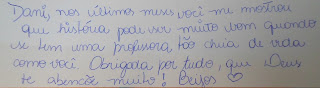 Dani, nos últimos meses você me mostrou
que história pode ser muito bom quando
se tem uma professora tão cheia de vida
como você. Obrigada por tudo, que Deus
te abençõe muito! Beijos ♡